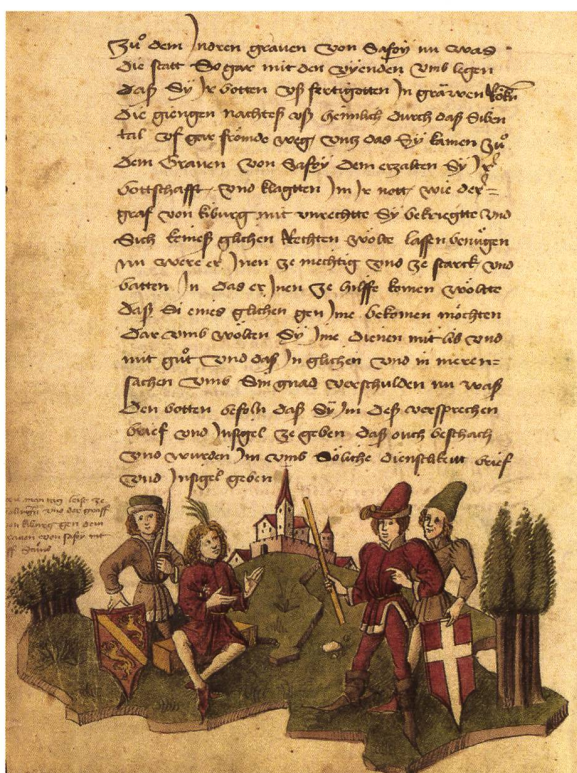 Zů dem Indren graven von Safoy nu was
die statt So gar mit den vyenden vmb legen
daß Sy Ir botten vß fertigotten In gräwen Röken
die giengen nachtes vß heimlich durch daß Siben
tal vf gar frömde weg vntz das Sy kamen zů
dem Graven von Safoy dem erzalten Sy Ir
bottschafft vnd klagtten Im Ir nott wie der
graf von kiburg mit vnrechtte Sy bekriegtte vnd
Sich keineß glichen Rechten wolte lassen benuͤgen
nu were er Inen ze mechtig vnd ze starck vnd
batten In das er Inen ze hilffe komen wöltte
daß Si eines glichen gen Ime bekomen möchten
dar vmb wolten Sy Ime dienen mit lib vnd
mit gůt vnd daß In glichen vnd in meren=
sachen vmb Sin gnad verschulden nu waß
den botten befoln daß Sy Im deß versprechen
brief vnd Insigel ze geben daß ouch beschach
vnd wurden Im vmb Söliche dienstbkeit brief
vnd Insigel geben
kiburg gen dem
graven von safoy mit